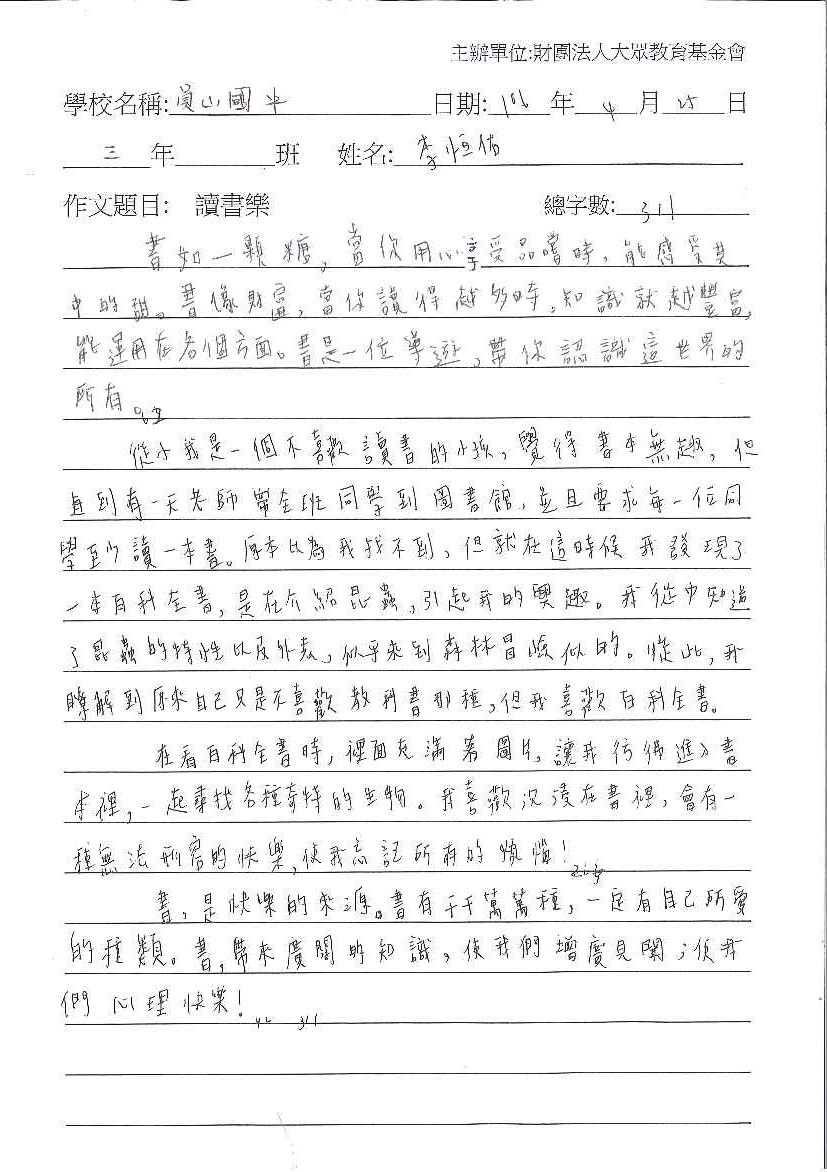 主辦單位:財團法人大眾教育基金會
學校名稱:員山國中 日期:106年4月25日
三年 班 姓名:李恒佑
作文題目: 讀書樂 總字數:311
書如一顆糖,當你用心享受品嚐時,能感受其
中的甜。書像財富,當你讀得越多時,知識就越豐富,
能運用在各個方面。書是一位導遊,帶你認識這世界的
所有。
從小我是一個不喜歡讀書的小孩,覺得書本無趣,但
直到有一天老師帶全班同學到圖書館,並且要求每一位同
學至少讀一本書。原本以為我找不到,但就在這時候我發現了
一本百科全書,是在介紹昆蟲,引起我的興趣。我從中知道
了昆蟲的特性以及外表,似乎來到森林冒險似的。從此,我
瞭解到原來自己只是不喜歡教科書那種,但我喜歡百科全書。
在看百科全書時,裡面充滿著圖片,讓我彷彿進入書
本裡,一起尋找各種奇特的生物。我喜歡沉浸在書裡,會有一
種無法形容的快樂,使我忘記所有的煩惱!
書,是快樂的來源。書有千千萬萬種,一定有自己所愛
的種類。書,帶來廣闊的知識,使我們增廣見聞;使我
們心理快樂!
311